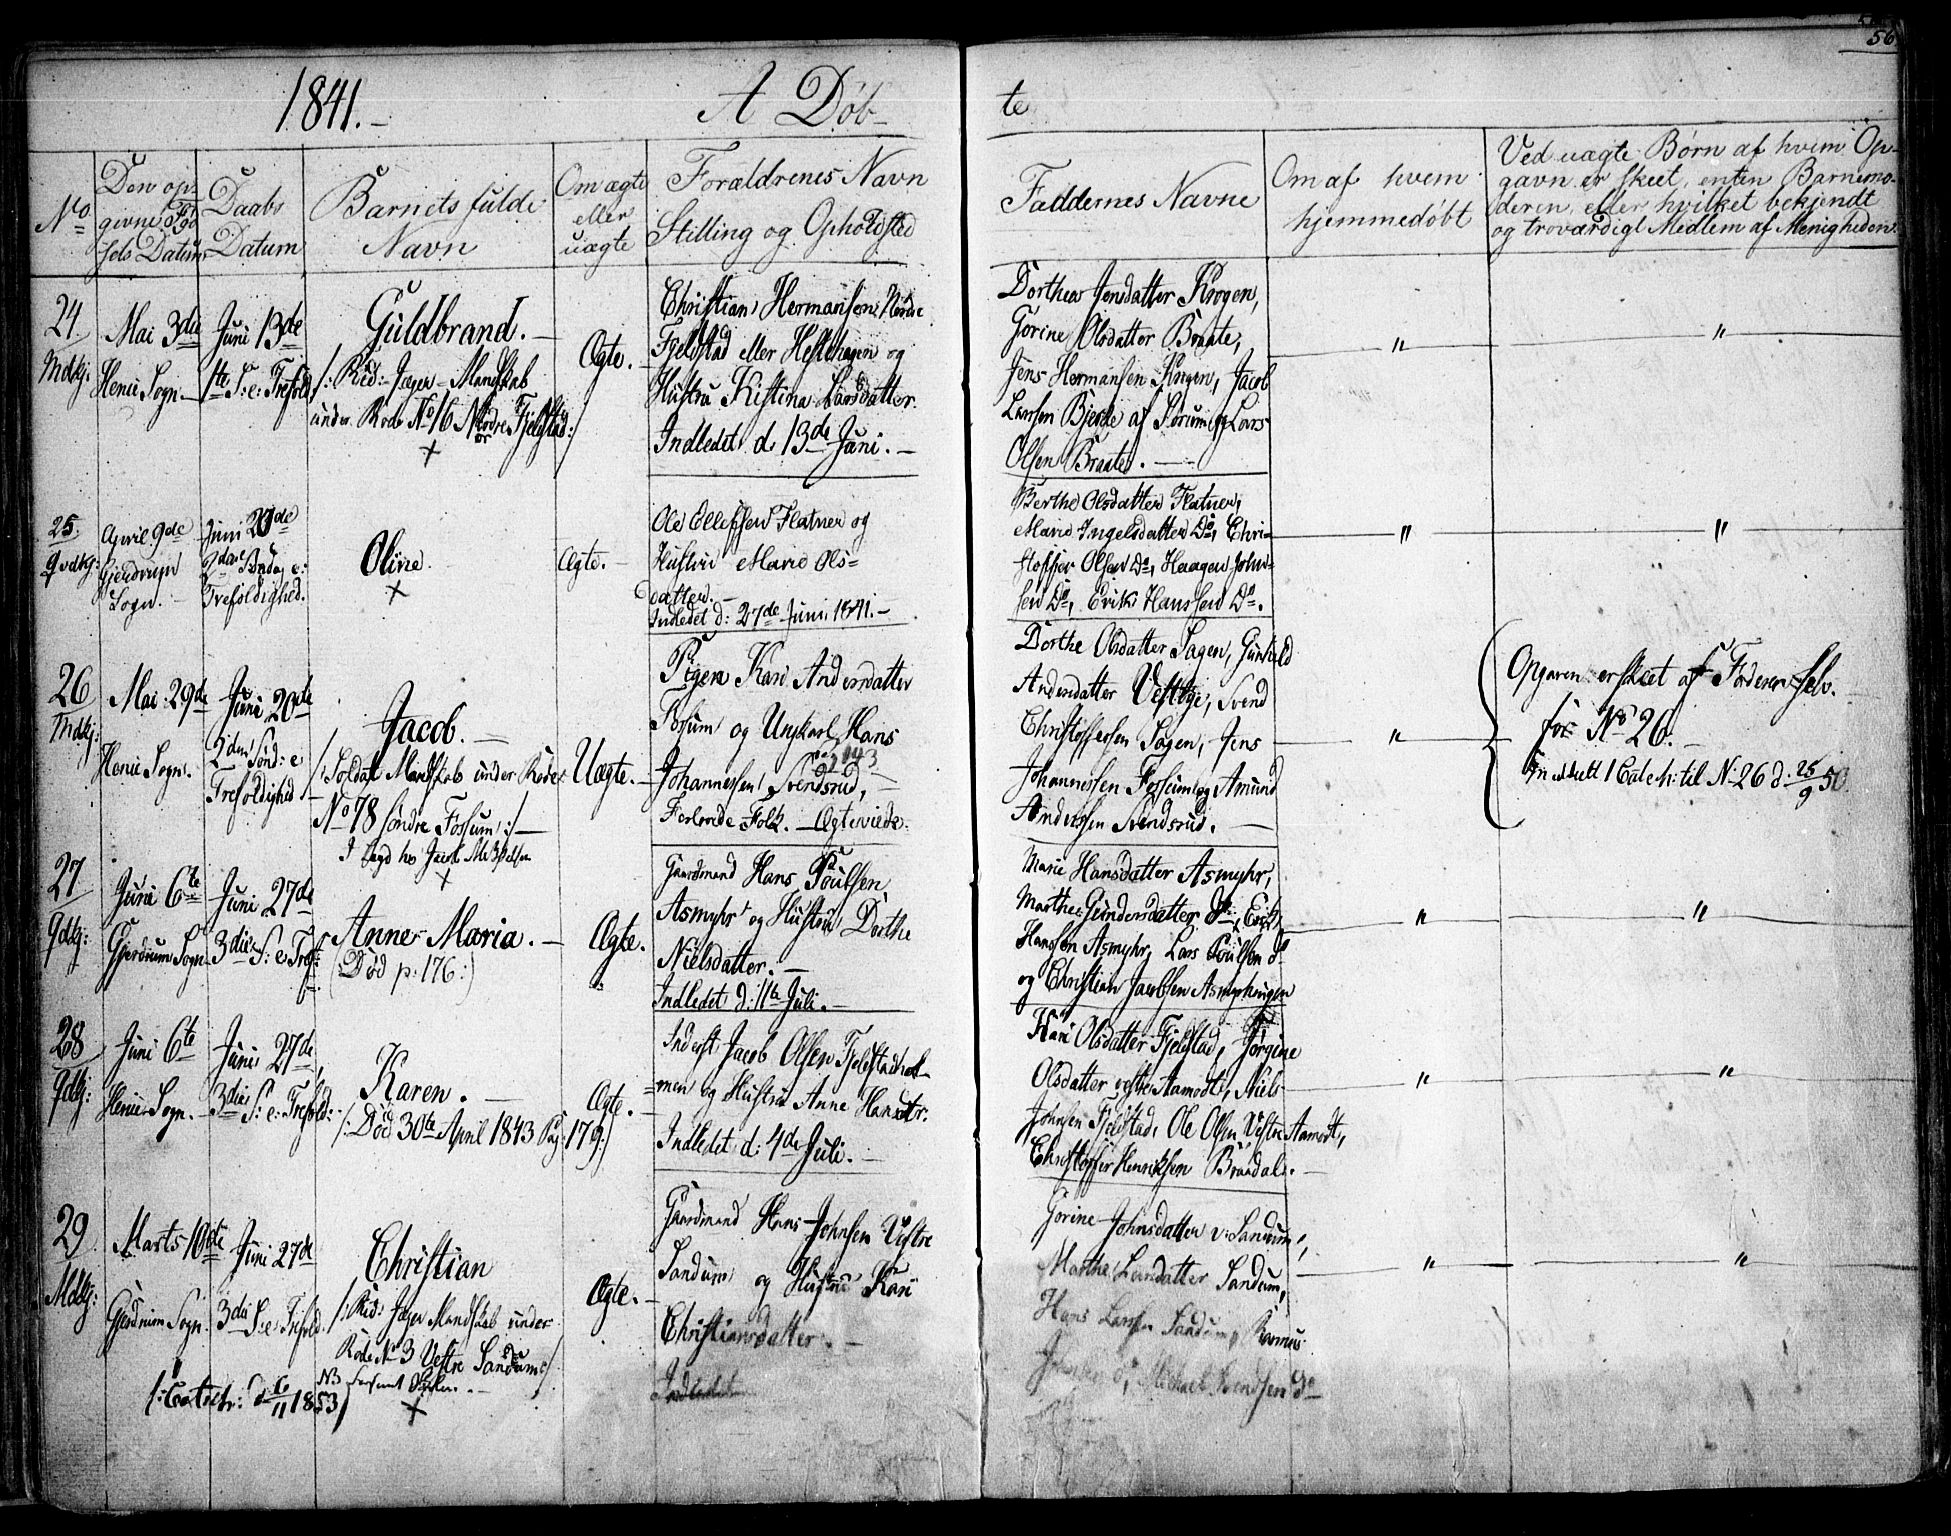 56
1841.
A Døb-
te
No
Den op-
givne Fød-
sels Datum
Daabs
Datum
Barnets fulde
Navn
Om ægte
eller
uægte
Forældrenes Navn
Stilling og Opholdsted
Faddernes Navne
Om af hvem
hjemmedøbt
Ved uægte Børn af hvem Op-
gavn er skeet, enten Barnemo-
deren, eller hvilket bekjendt
og troværdigt Medlem af Menigheden.
24
Mdkj:
Mai 3die
Henie Sogn.
Juni 13de
1ste S: e: Trefold
Guldbrand. -
/: Rid: Jæger-Mandskab
under Rode No 16 Nordre Fjelstad :/
+
Ægte.
Christian Hermansen Nordre
Fjeldstad eller Heslehagen og
Hustru Kistina Larsdatter.
Indledet d. 13de Juni. -
Dorthea Jensdatter Krogen,
Gorine Olsdatter Braate,
Jens Hermansen Krogen, Jacob
Larsen Bjerke af Sørum og Lars
Olsen Braate. -
"
"
25
Qvdkj:
April 9de
Gjerdrum
Sogn. -
Juni 20de
2den Søndag e:
Trefoldighed.
Oline.
+
Ægte. -
Ole Ellefsen Flatner og
Hustru Marie Ols-
datter. -
Indledet d: 27de Juni 1841. -
Berthe Olsdatter Flatner,
Marie Ingelsdatter Do, Chri-
stoffer Olsen Do, Haagen John-
sen Do, Erik Hanssen Do.
"
"
26
Mdkj:
Mai 29de
Henie Sogn.
Juni 20de
2den Sønd: e
Trefoldighed
Jacob. -
/: Soldat Mandskab under Rode
No 78 søndre Fossum :/ -
I Lægd hos Jacob
+
Uægte. -
Pigen Kari Andersdatter
Fossum og Ungkarl Hans
Johannessen Svendsrud, -
Forlovede Folk. - Ægteviede.
Dorthe Olsdatter Sagen, Gunild
Andersdatter Vestbye, Svend
Christoffersen Sagen, Jens
Johannessen Fossum og Amund
Anderssen Svendsrud. -
"
Opgaven er skeet af Faderen selv.
for No 26. -
Meddelt 1 Catech: til No 26 d. 25/9 50.
27
Qdkj:
Juni 6te
Gjerdrum Sogn
Juni 27de
3die S: e Tref:
Anne Maria. -
(Død p: 176:)
Ægte.
Gaardmand Hans Poulsen
Asmyhr og Hustru Dorthe
Nielsdatter. -
Indledet d: 11te Juli. -
Marie Hansdatter Asmyhr,
Marthe Gundersdatter Do, Erik
Hanssen Asmyhr, Lars Poulsen do
og Christian Jacobsen Asmyhrengen
"
"
28
Qdkj:
Juni 6te
Henie Sogn.
Juni 27de,
3die S: e: Trefold:
Karen. -
/: Død 30te April 1843 Pag: 179:/
Ægte.
Inderst Jacob Olsen Fjelstadhol-
men og Hustru Anne Hansdtr.
Indledet d: 4de Juli. -
Kari Olsdatter Fjelstad, Jørgine
Olsdatter vestre Aamodt, Niels
Johnsen Fjelstad, Ole Olsen Vestre Aamodt,
Christoffer Henriksen Brandal. -
"
"
29
Mdkj:
Marts 10de
Gjerdrum Sogn.
Juni 27de
3die S: e Trefold.
Christian
/: Rid: Jæger Mandskab under
Rode No 3 Vestre Sandum :/
NB
+
/: Catech: d 6/11 1853/
Ægte. -
Gaardmand Hans Johnsen Vestre
Sandum og Hustru Kari
Christiansdatter. -
Indledet
Gorine Johnsdatter v: Sandum,
Marthe Larsdatter Sandum,
Hans Larsen Sandum, Rasmus
do, Michael Svendsen do
"
"